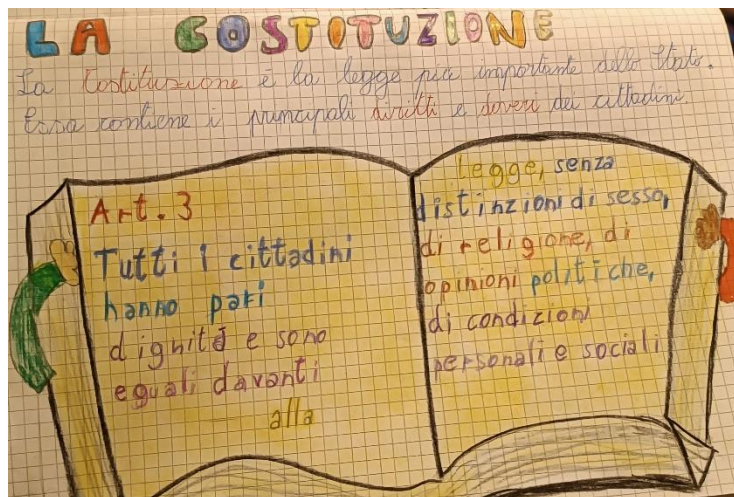 LA COSTITUZIONE
La Costituzione è la legge più importante dello Stato.
Essa contiene i principali diritti e doveri dei cittadini.
Art. 3
Tutti i cittadini
hanno pari
dignità e sono
eguali davanti
alla
legge, senza
distinzioni di sesso,
di religione, di
opinioni politiche,
di condizioni
personali e sociali